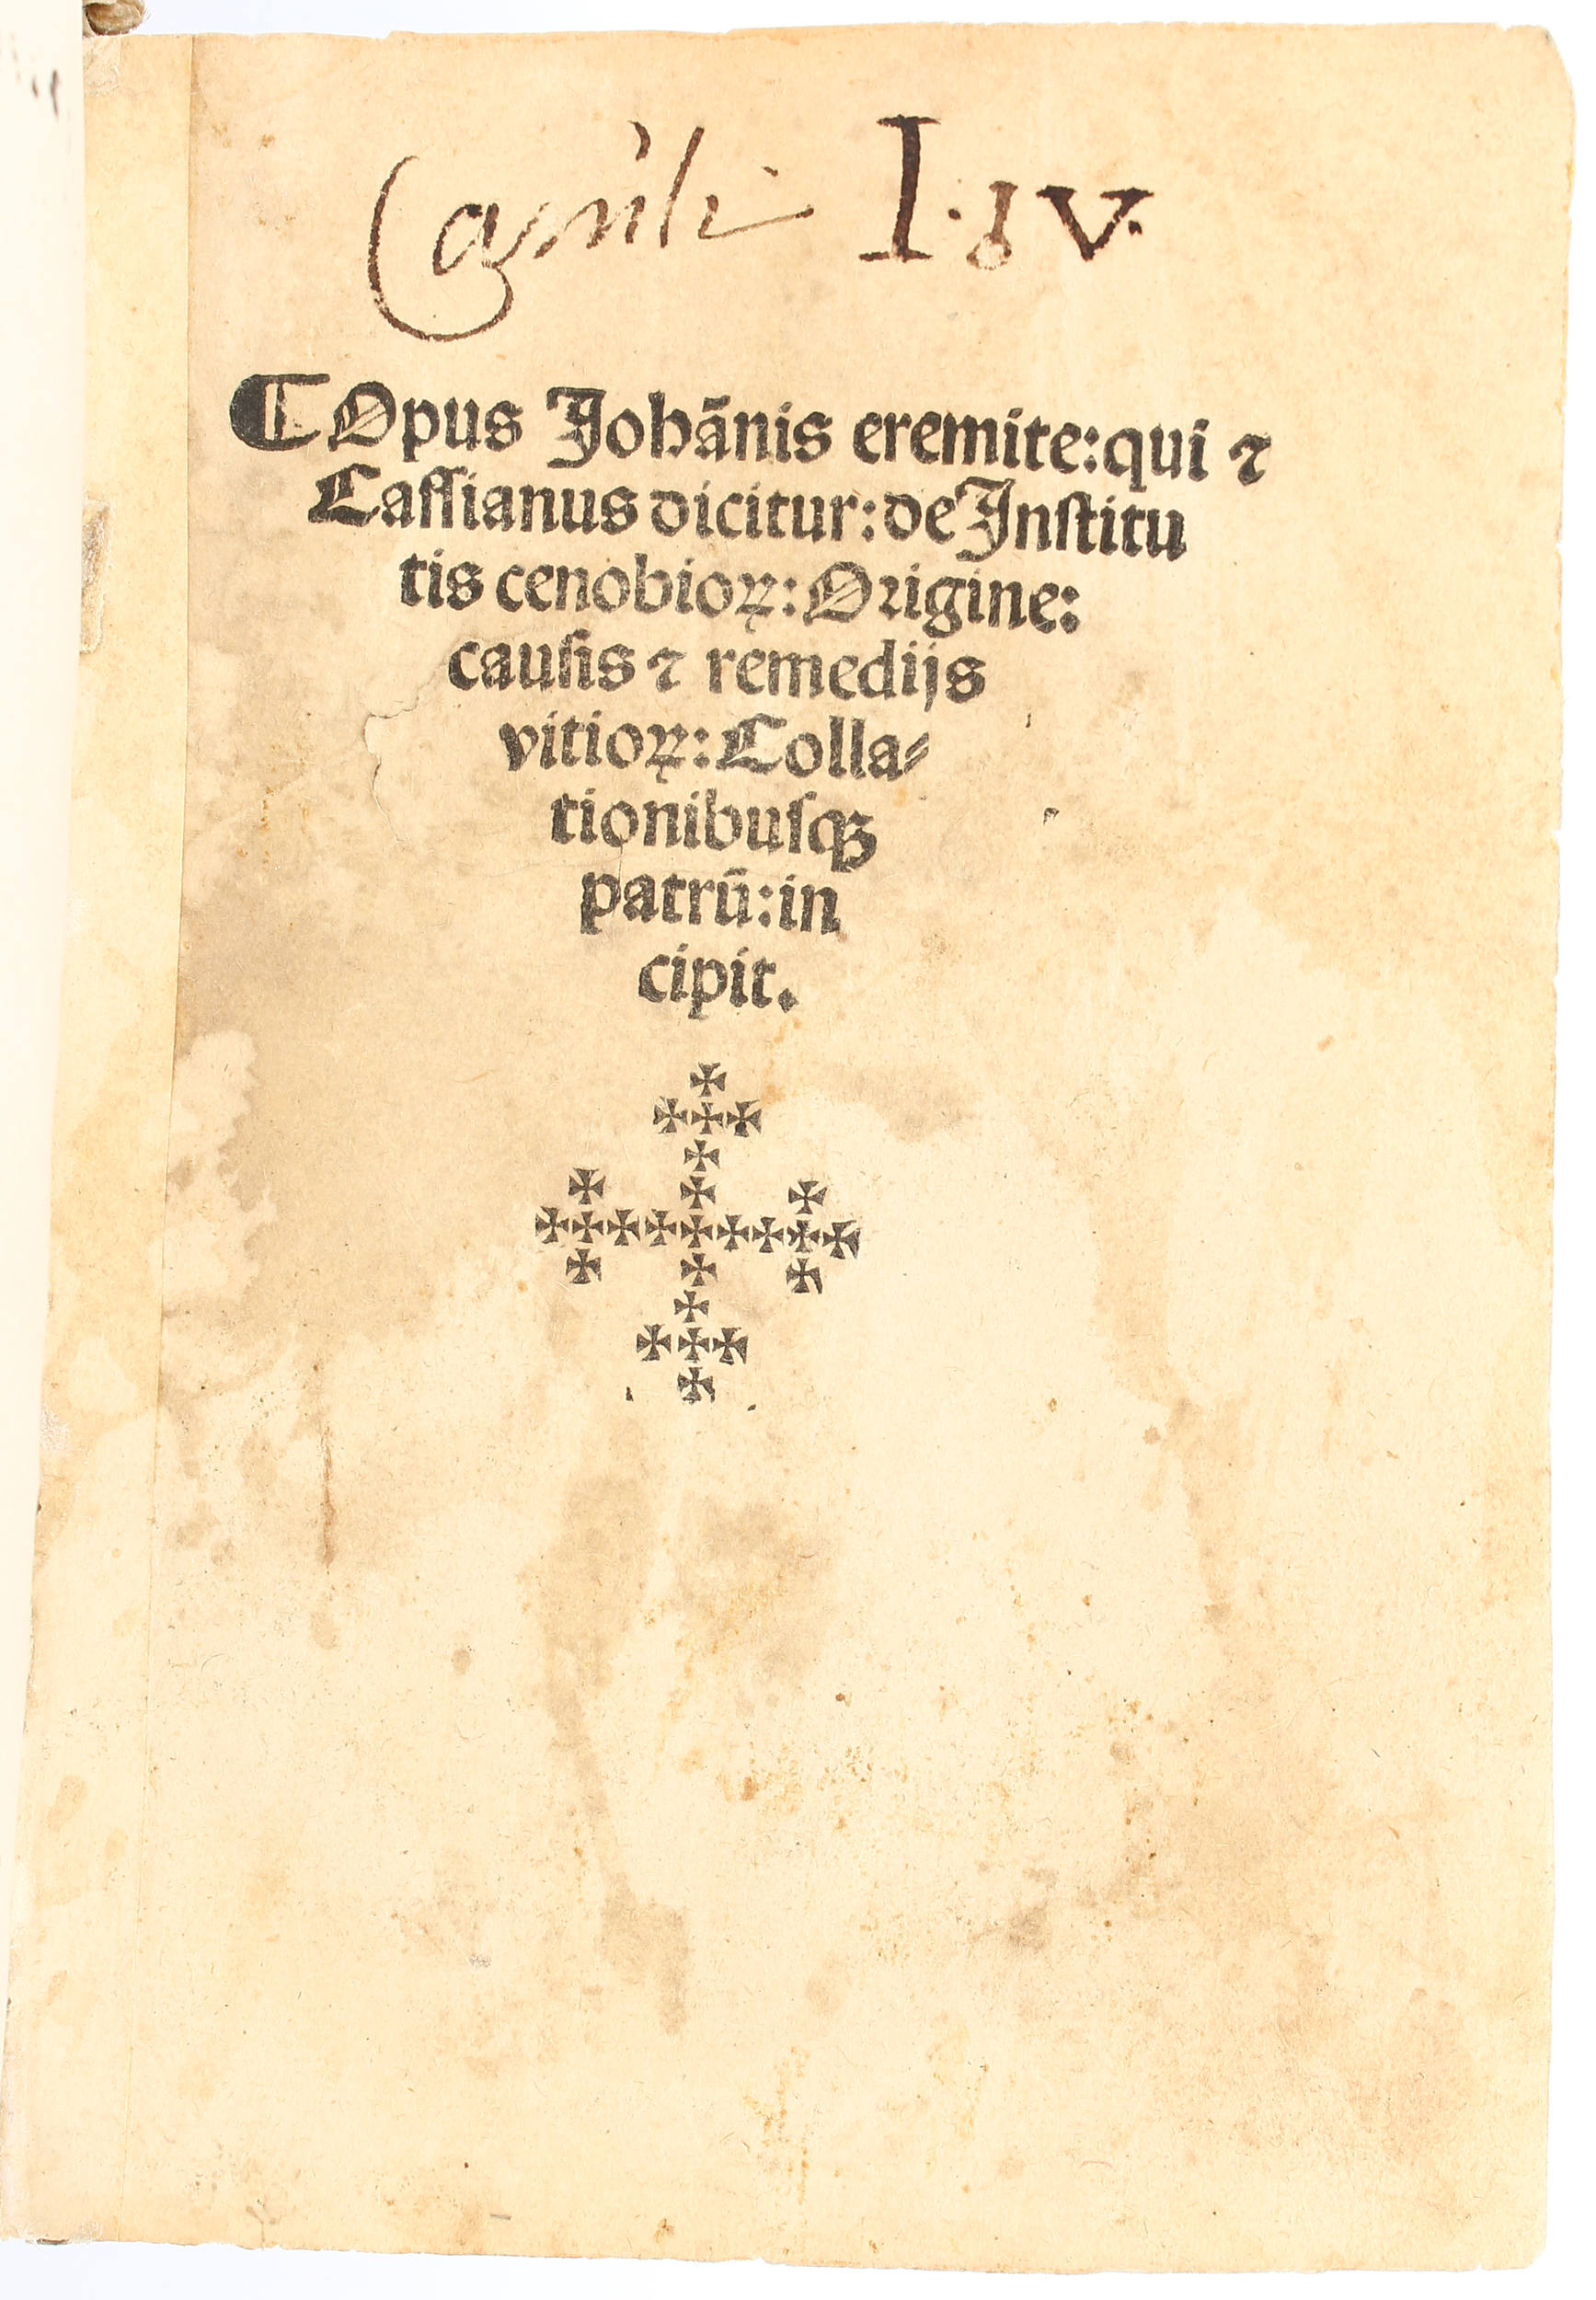 I·IV·
¶Opus Johānis eremite:qui ⁊
Cassianus dicitur:de Institu
tis cenobioꝝ:Origine:
causis ⁊ remedijs
vitioꝝ:Colla⸗
tionibusqꝫ
patrū:in
cipit.